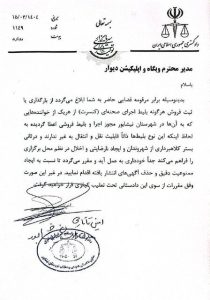 بسمه تعالی
تاریخ ۱۴۰۴/۰۳/۱۵
شماره ۱۱۴۹
پیوست
دادگستری جمهوری اسلامی ایران
مدیر محترم وبگاه و اپلیکیشن دیوار
باسلام
بدینوسیله برابر مرقومه قضایی حاضر به شما ابلاغ می‌گردد از بارگذاری یا
ثبت فروش هرگونه بلیط اجرای صحنه‌ای (کنسرت) از هریک از خواننده‌هایی
که به آن‌ها در شهرستان نیشابور مجوز اجرا و بلیط فروشی اعطا گردیده به
لحاظ اینکه این نوع بلیط‌ها ذاتاً قابلیت نقل و انتقال به غیر ندارند و درثانی
بستر کلاهبرداری از شهروندان و ایجاد نارضایتی و اخلال در نظم محل برگزاری
را فراهم می‌کند جداً خودداری به عمل آید و مقرر می‌گردد تا نسبت به ایجاد
ممنوعیت دقیق و حذف آگهی‌های انتشار یافته اقدام نمایید در غیر این صورت
وفق مقررات از سوی این دادستانی تحت تعقیب کیفری قرار خواهید گرفت.